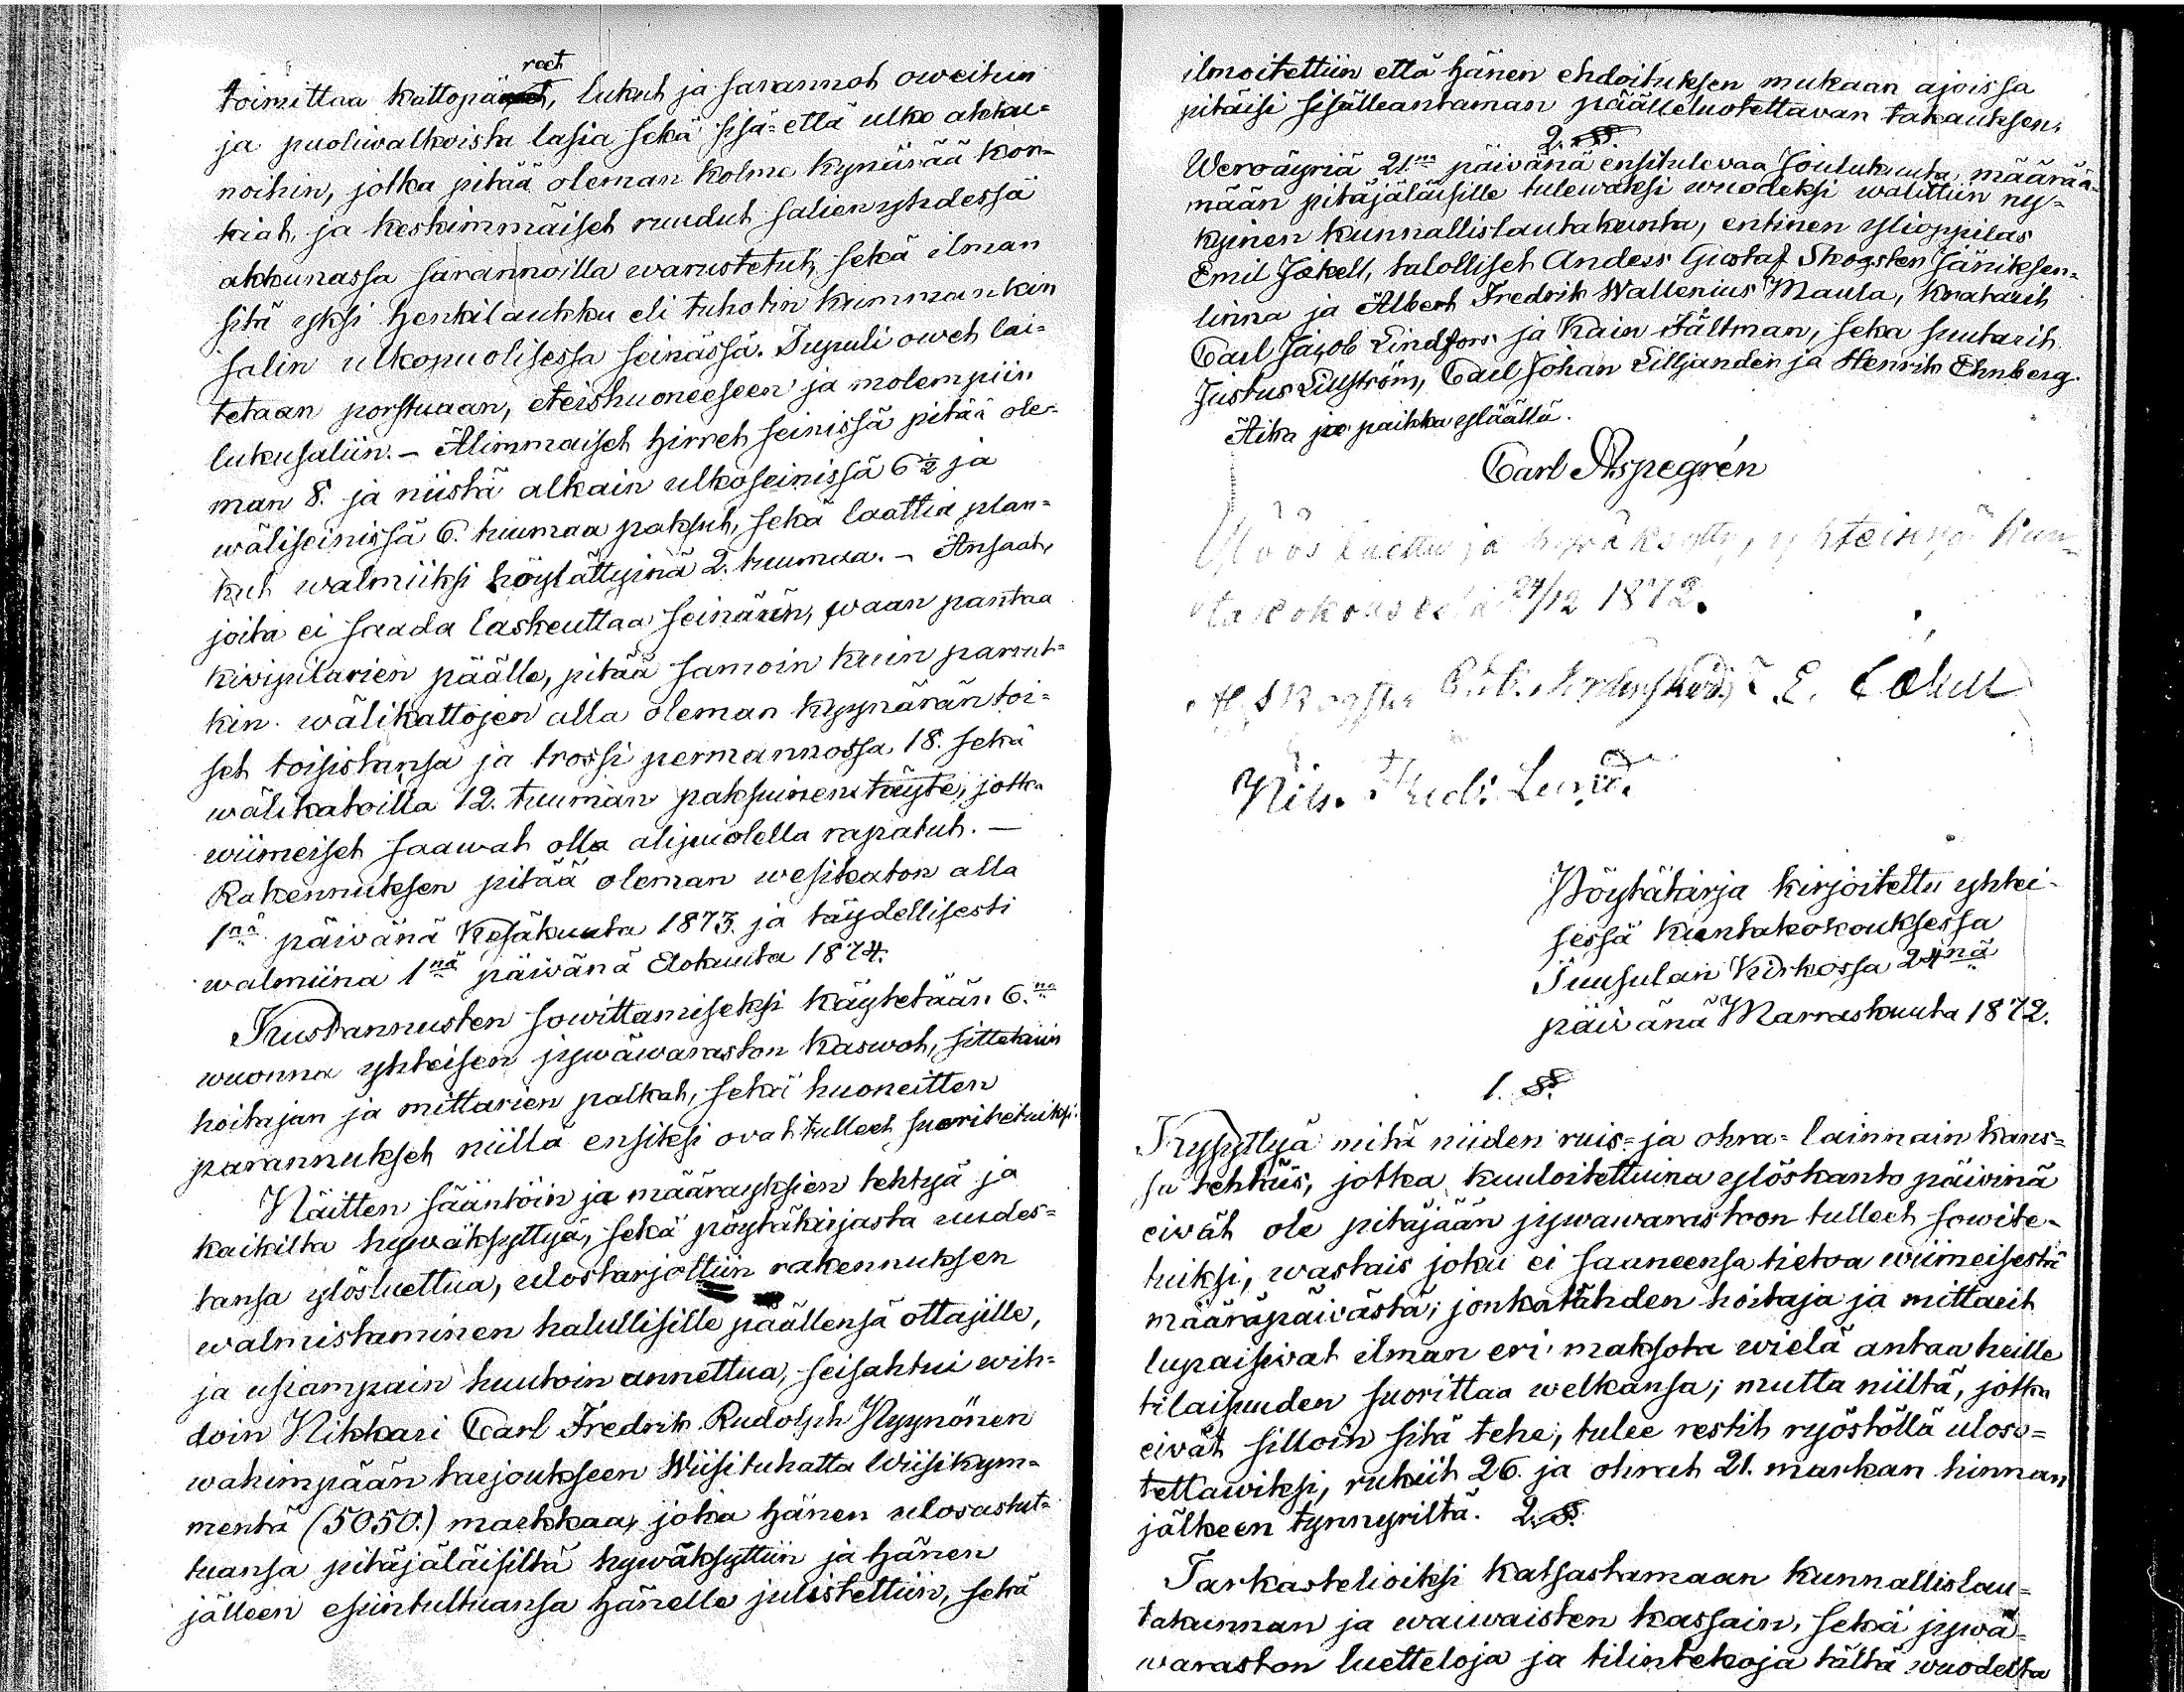 toimittaa kattopäreet, lukut ja sarannot oweihin
ja puoliwalkoista lasia sekä sisä= että ulko akku=
noihin, jotka pitää oleman kolme kynärää kor=
kiat, ja keskimmäiset ruudut salien yhdessä
akkunassa sarannoilla warustetut, sekä ilman
sitä yksi henkilaukku eli tuhotin kummankin
salin ulkopuolisessa seinässä. Tupuli owet lai=
tetaan porstuaan, eteishuoneeseen ja molempiin
lukusaliin. – Alimmaiset hirret seinissä pitää ole=
man 8. ja niistä alkain ulkoseinissä 6½ ja
wäliseinissä 6. tuumaa paksut, sekä laattia plan=
kut walmiiksi höylättyinä 2. tuumaa. – Ansaat,
joita ei saada laskeuttaa seinään, waan pantaa
kivipilarien päälle, pitää samoin kuin parrut=
kin wälikattojen alla oleman kyynärän toi=
set toisistansa ja trossi permannossa 18. sekä
wälikatoilla 12. tuuman paksuinen täyte, jotka
wiimeiset saawat olla alipuolella rapatut. —
Rakennuksen pitää oleman wesikaton alla
1nä päivänä Kesäkuuta 1873. ja täydellisesti
walmiina 1nä päivänä Elokuuta 1874.
Kustannusten sowittamiseksi käytetään 6.na
wuonna yhteisen jywäwaraston kaswot, sittekuin
hoitajan ja mittarien palkat, sekä huoneitten
parannukset niillä ensiksi ovat tulleet suoritetuiksi.
Näitten sääntöin ja määräyksien tehtyä ja
kaikilta hywäksyttyä, sekä pöytäkirjasta uudes=
tansa ylösluettua, ulostarjottiin rakennuksen
walmistaminen halullisille päällensä ottajille,
ja usiampain huutoin annettua, seisahtui wih=
doin Nikkari Carl Fredrik Rudolph Nyynönen
wahimpään tarjoukseen Wiisituhatta Wiisikym=
mentä (5050.) markkaa, joka hänen ulosastut=
tuansa pitäjäläisiltä hywäksyttiin ja hänen
jälleen esiintultuansa hänelle julistettiin, sekä
ilmoitettiin että hänen ehdoituksen mukaan ajoissa
pitäisi sisälleantaman päälleluotettavan takauksen.
2. §.
Weroäyriä 21.nä päivänä ensitulevaa Joulukuuta määrää=
mään pitäjäläisille tulewaksi wuodeksi walittiin ny=
kyinen kunnallislautakunta, entinen ylioppilas
Emil Jækell, talolliset Anders Gustaf Skogster Jäniksen=
linna ja Albert Fredrik Wallenius Maula, kratarit
Carl Jacob Lindfors ja Kain Fältman, seka suutarit
Justus Lillström, Carl Johan Lilljanden ja Henrik Ehnberg.
Aika ja paikka ylääIlä.
Carl Aspegrén
Ylös luettu ja hyväksytty, yhteisesä Kun=
ta kokouksesa 24/12 1872.
A. Skogster
Nils. Fredr: Lund.
Pöytäkirja kirjoitettu yhtei-
sessä kuntakokouksessa
Tuusulan Kirkossa 24nä
päivänä Marraskuuta 1872.
1. §.
Kysyttyä mitä niiden ruis= ja ohra= lainnain kans=
sa tehtäis, jotka kuuloitettuina ylöskanto päivinä
eivät ole pitäjään jywäwarastoon tulleet sowite-
tuiksi, wastais joku ei saaneensa tietoa wiimeisestä
määräpäivästä; jonkatähden hoitaja ja mittarit
lupaisivat ilman eri maksota wielä antaa heille
tilaisuuden suorittaa welkansa; mutta niiltä, jotka
eivät silloin sitä tehe, tulee restit ryöstöllä uloso=
tettawiksi, rukiit 26. ja ohrat 21. markan hinnan
jälkeen tynnyriltä. 2. §.
Tarkastelioiksi katsastamaan kunnallislau=
takunnan ja waiwaisten kassain, sekä jywä=
waraston luetteloja ja tilintekoja tältä wuodelta